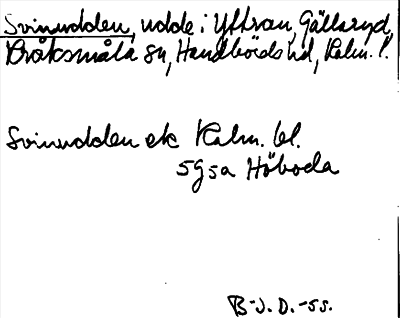 Svinudden, udde i Yttran, Gällaryd,
Bråksmåla sn, Handbörds hd, Kalm. l.
Svinudden ek Kalm. bl.
5G5a Höboda
B-J. D. -55.